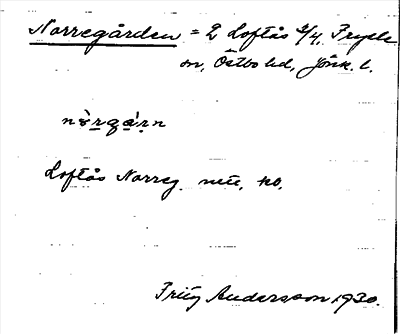 Norregården = 2 Loftås 1/4, Fryele
sn, Östbo hd, Jönk. l.
Loftås Norreg
Fritz Andersson 1930.